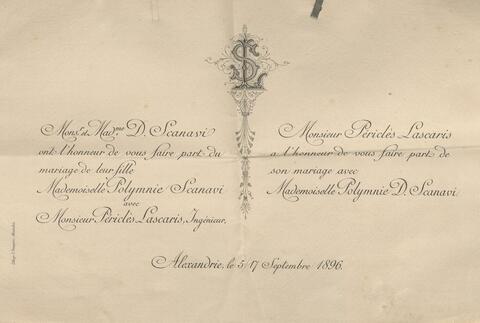 SL
Mons. et Mad.me D. Scanavi
ont l'honneur de vous faire part du
mariage de leur fille
Mademoiselle Polymnie Scanavi
avec
Monsieur Périclès Lascaris, Ingénieur.
Monsieur Périclès Lascaris
a l'honneur de vous faire part de
son mariage avec
Mademoiselle Polymnie D. Scanavi
Alexandrie, le 5/17 Septembre 1896.